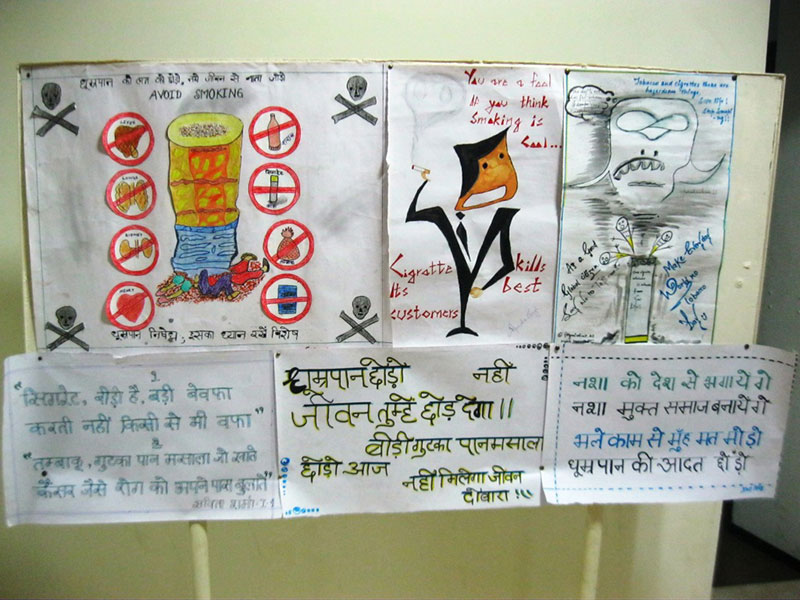 धूम्रपान की लत को छोड़ो, नये जीवन से नाता जोड़ो
AVOID SMOKING
KIDNEY
HEART
धूम्रपान निषेध, इसका ध्यान रखें विशेष
You are a fool
If you think
Smoking is
Cool...
Cigrotte kills
Its best
customers
Tobacco and cigrettes these are
hazardous things.
As a Good
Make
1
"सिगरेट, बीड़ी है, बड़ी बेवफा
करती नहीं किसी से भी वफा"
2
"तम्बाकू, गुटका पान मसाला जो खाते
कैंसर जैसे रोग को अपने पास बुलाते"
धूम्रपान छोड़ो नहीं
जीवन तुम्हें छोड़ देगा।।
बीड़ी गुटका पानमसाला
छोड़ो आज
नहीं मिलेगा जीवन
दोबारा !
नशा को देश से भगायेगे
नशा मुक्त समाज बनायेगे
भले काम से मुँह मत मोड़ो
धूम्रपान की आदत छोड़ो